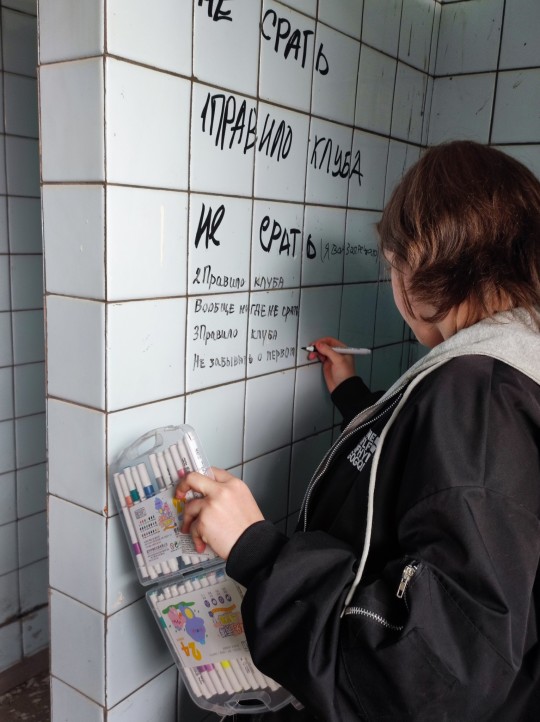 НЕ СРАТЬ
1ПРАВИЛО КЛУБА
НЕ СРАТЬ (Я ВАМ ЗАПРЕЩАЮ
2Правило КЛУБА
ВООБЩЕ НИГДЕ НЕ СРАТЬ
3Правило КЛУБА
НЕ ЗАБЫВАТЬ О ПЕРВОМ
24